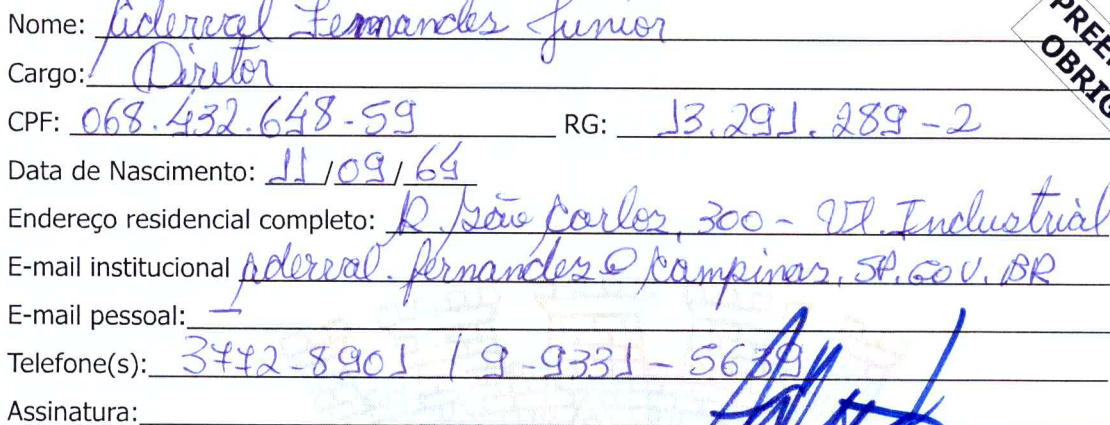 Nome: Aderval Fernandes Junior
Cargo: Diretor
CPF: 068.432.648-59 RG: 13.291.289-2
Data de Nascimento: 11/09/64
Endereço residencial completo: R. São Carlos, 300 - Vl. Industrial
E-mail institucional aderval.fernandes@campinas.SP.GOV.BR
E-mail pessoal: —
Telefone(s): 3772-8901 / 9-9331-5639
Assinatura: